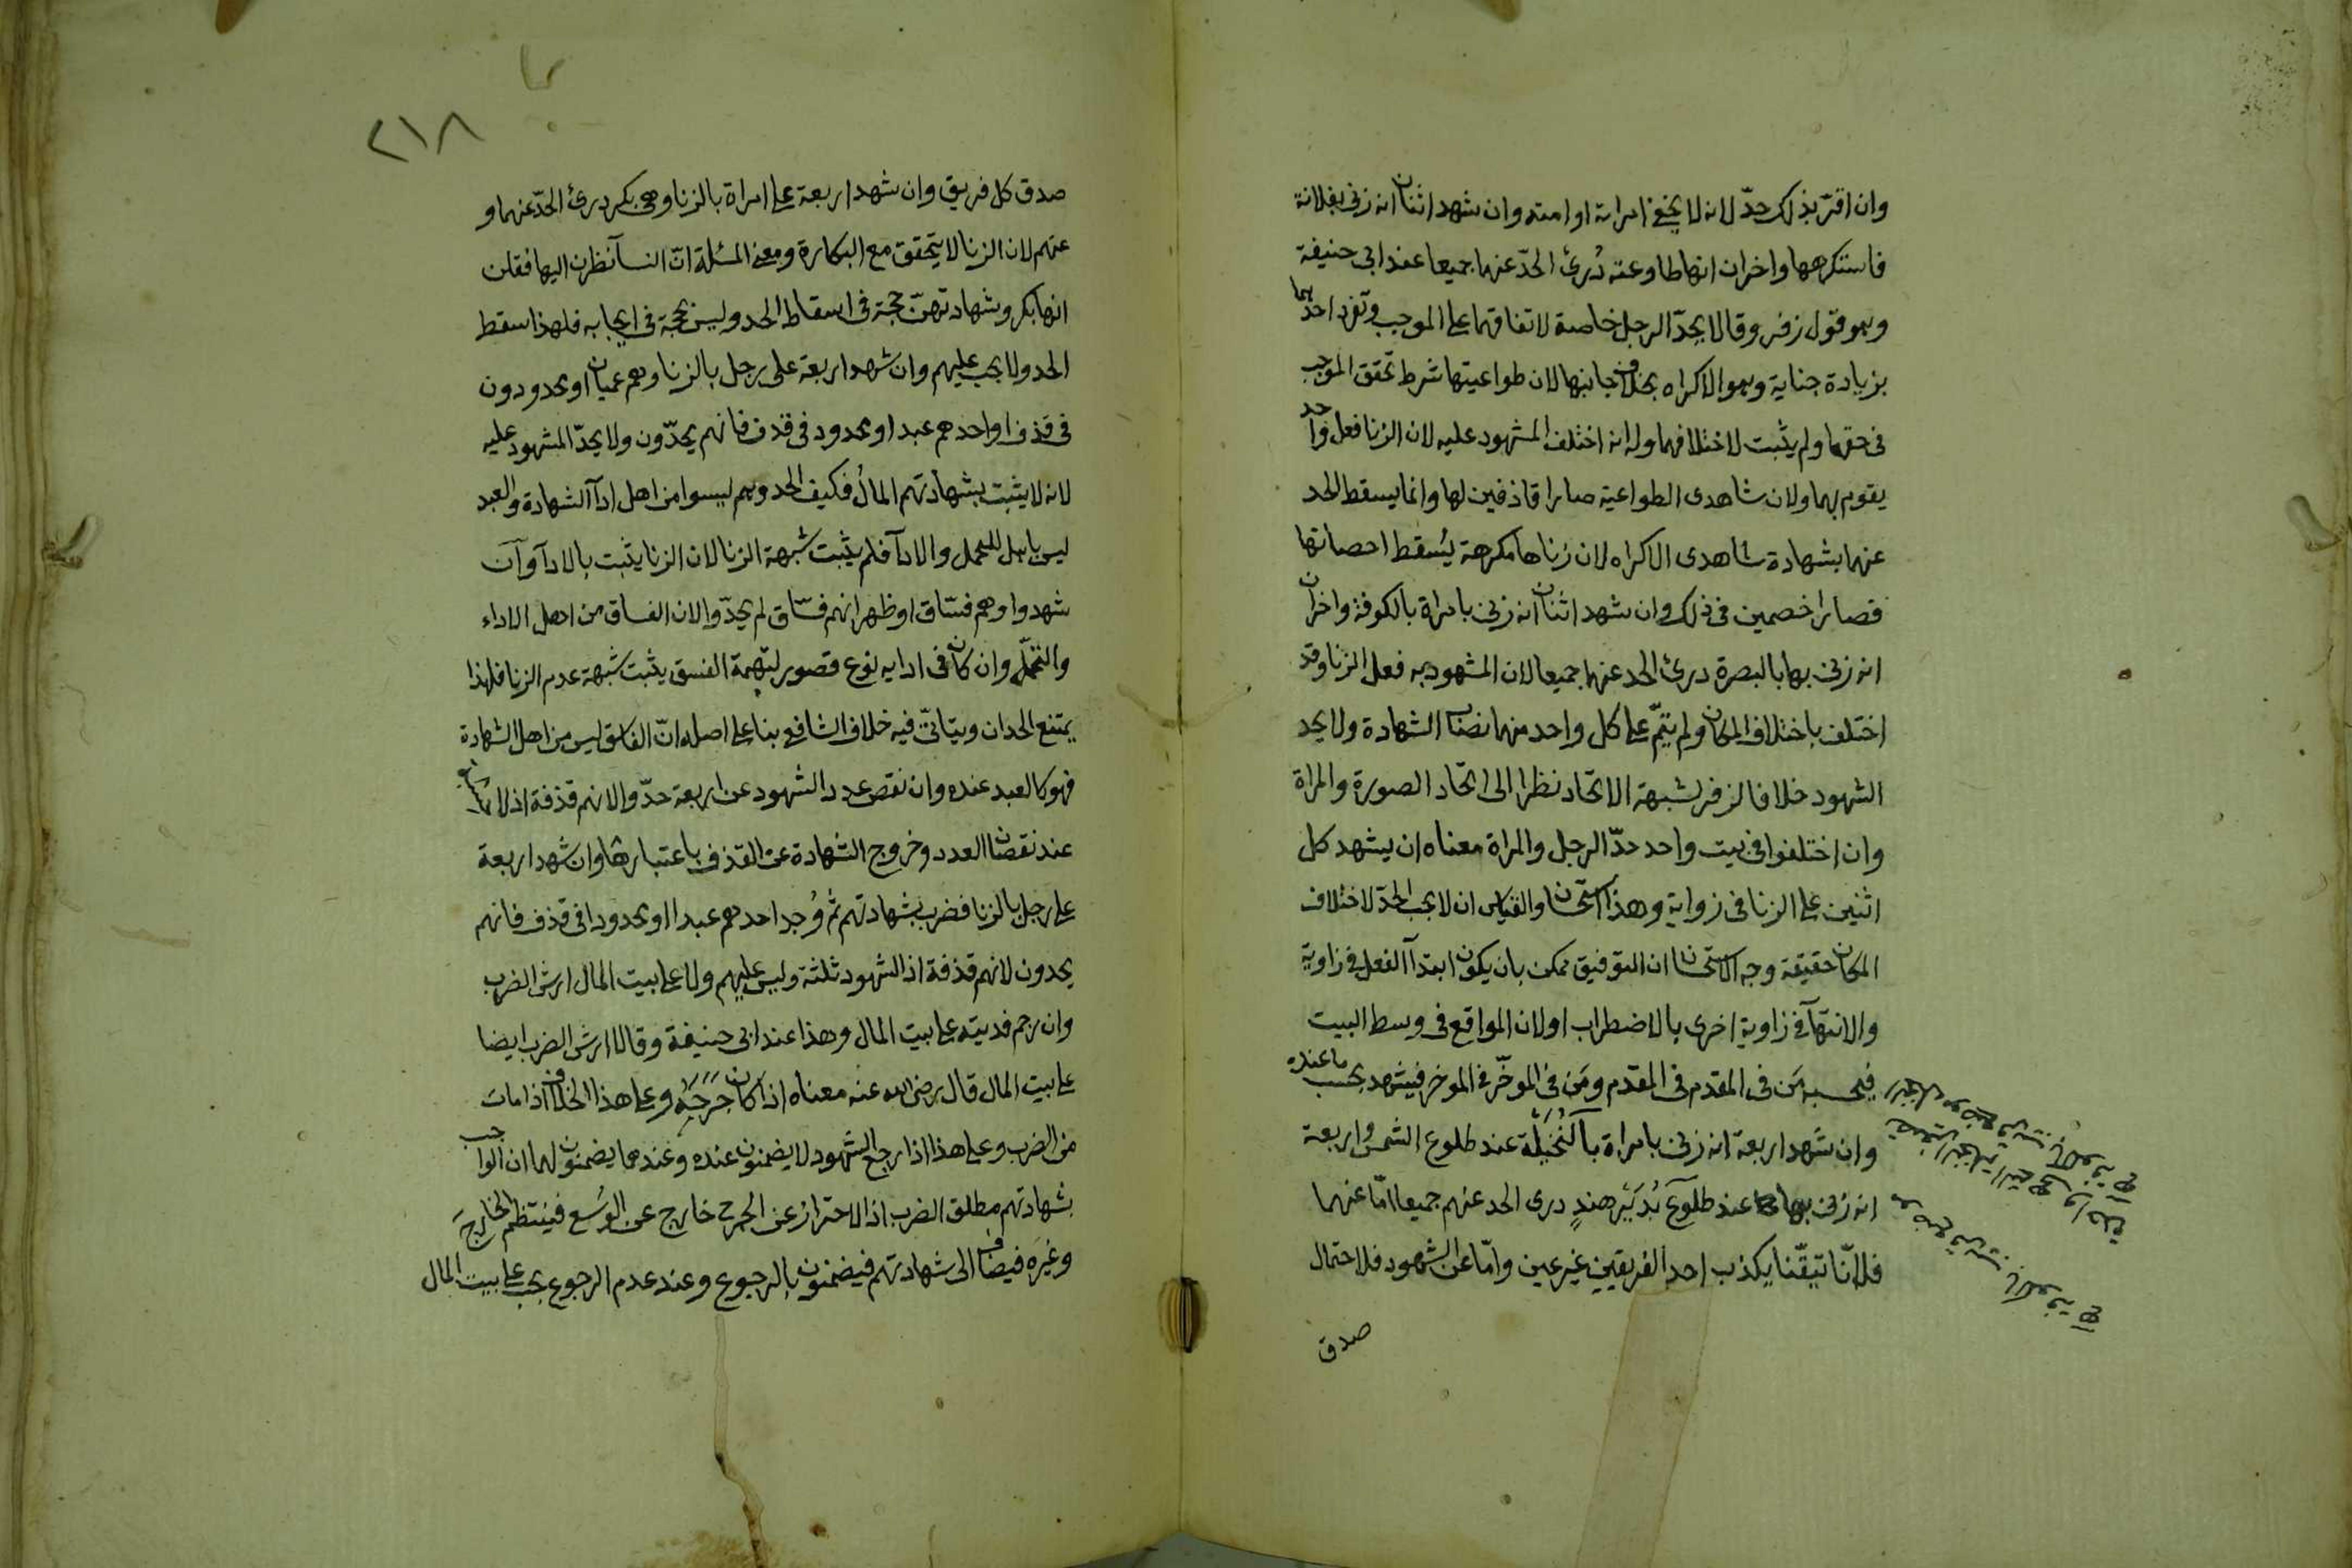 وان اقرّ بذلك حدّ لانه لا يخفى امراته او امته وان شهد اثنان انه زنى بفلانة
فاستكرهها واخران انها طاوعته دُرئ الحدّ عنهما جميعا عند ابى حنيفة
وهو قول زفر وقالا يحدّ الرجل خاصة لاتفاقهما على الموجب وتفرد احدهما
بزيادة جناية وهو الاكراه بخلاف جانبها لان طواعيتها شرط تحقق الموجب
فى حقها ولم يثبت لاختلافهما وله انه اختلف المشهود عليه لان الزنا فعل واحد
يقوم بهما ولان شاهدى الطواعية صارا قاذفين لها وانما يسقط الحد
عنهما بشهادة شاهدى الاكراه لان زناها مكرهة يُسقط احصانها
فصارا خصمين فى ذلك وان شهد اثنان انه زنى بامراة بالكوفة واخران
انه زنى بها بالبصرة درئ الحد عنهما جميعا لان المشهود به فعل الزنا وقد
اختلف باختلاف المكان ولم يتمّ على كل واحد منهما نصاب الشهادة ولا يحد
الشهود خلافا لزفر لشبهة الاتحاد نظرا الى اتحاد الصورة والمراة
وان اختلفوا فى بيت واحد حدّ الرجل والمراة معناه ان يشهد كل
اثنين على الزنا فى زواية وهذا استحسان والقياس ان لا يجب الحدّ لاختلاف
المكان حقيقة وجه الاستحسان ان التوفيق ممكن بان يكون ابتدآ الفعل فى زاوية
والانتهآ فى زاوية اخرى بالاضطراب او لان الواقع فى وسط البيت
فيحسبه مَن فى المقدم فى المقدم ومَن فى الموخّر فى الموخر فيشهد بحسب ما عنده
وان شهد اربعة انه زنى بامراة بالنُخَيْلَة عند طلوع الشمس واربعة
انه زنى بها عند طلوع بدَيْر هندٍ درى الحد عنهم جميعا امّا عنهما
فلانّا تيقّنا بكذب احد الفريقين غير عين وامّا عن الشهود فلاحتمال
صدق
٢١٨
صدق كل فريق وان شهد اربعة على امراة بالزنا وهى بكر درئ الحدّ عنهما و
عنهم لان الزنا لا يتحقق مع البكارة ومعنى المسئلة انّ النسآ نظرن اليها فقلن
انها بكر وشهادتهنّ حجة فى اسقاط الحد وليس بحجة فى ايجابه فلهذا سقط
الحد ولا يجب عليهم وان شهد اربعة على رجل بالزنا وهم عميان او محدودون
فى قذف او احدهم عبد او محدود فى قذف فانهم يحدّون ولا يحدّ المشهود عليه
لانه لا يثبت بشهادتهم المالُ فكيف الحد وهم ليسوا من اهل ادآ الشهادة والعبد
ليس باهل للتحمل والادآ فلم يثبت شبهة الزنا لان الزنا يثبت بالادآ وان
شهدوا وهم فسّاق او ظهر انهم فسّاق لم يحدّوا لان الفساق من اهل الاداء
والتحمّل وان كان فى ادايه نوع قصور لتهمة الفسق يثبت شبهة عدم الزنا فلهذا
يمتنع الحدان وسياتىّ فيه خلاف الشافعى بنا على اصله انّ الفاسق ليس من اهل الشهادة
فهو كالعبد عنده وان نقص عدد الشهود عن اربعة حدّوا لانهم قذفة اذ لا حسبة
عند نقصان العدد وخروج الشهادة عن القذف باعتبارها وان شهد اربعة
على رجل بالزنا فضرب بشهادتهم ثم وُجد احدهم عبدا او محدودا فى قذف فانهم
يحدون لانهم قذفة اذ الشهود ثلثة وليس عليهم ولا على بيت المال ارش الضرب
وان رجم فديته على بيت المال وهذا عند ابى حنيفة وقالا ارش الضرب ايضا
على بيت المال قال رضى الله عنه معناه اذا كان جَرَحَهُ وعلى هذا الخلاف اذا مات
من الضرب وعلى هذا اذا رجع الشهود لا يضمنون عنده وعندهما يضمنون لهما ان الواجب
بشهادتهم مطلق الضرب اذ الاحتراز عن الجرح خارج عن الوُسع فينتظم الخارجَ
وغيره فيضاف الى شهادتهم فيضمنون بالرجوع وعند عدم الرجوع يجب على بيت المال